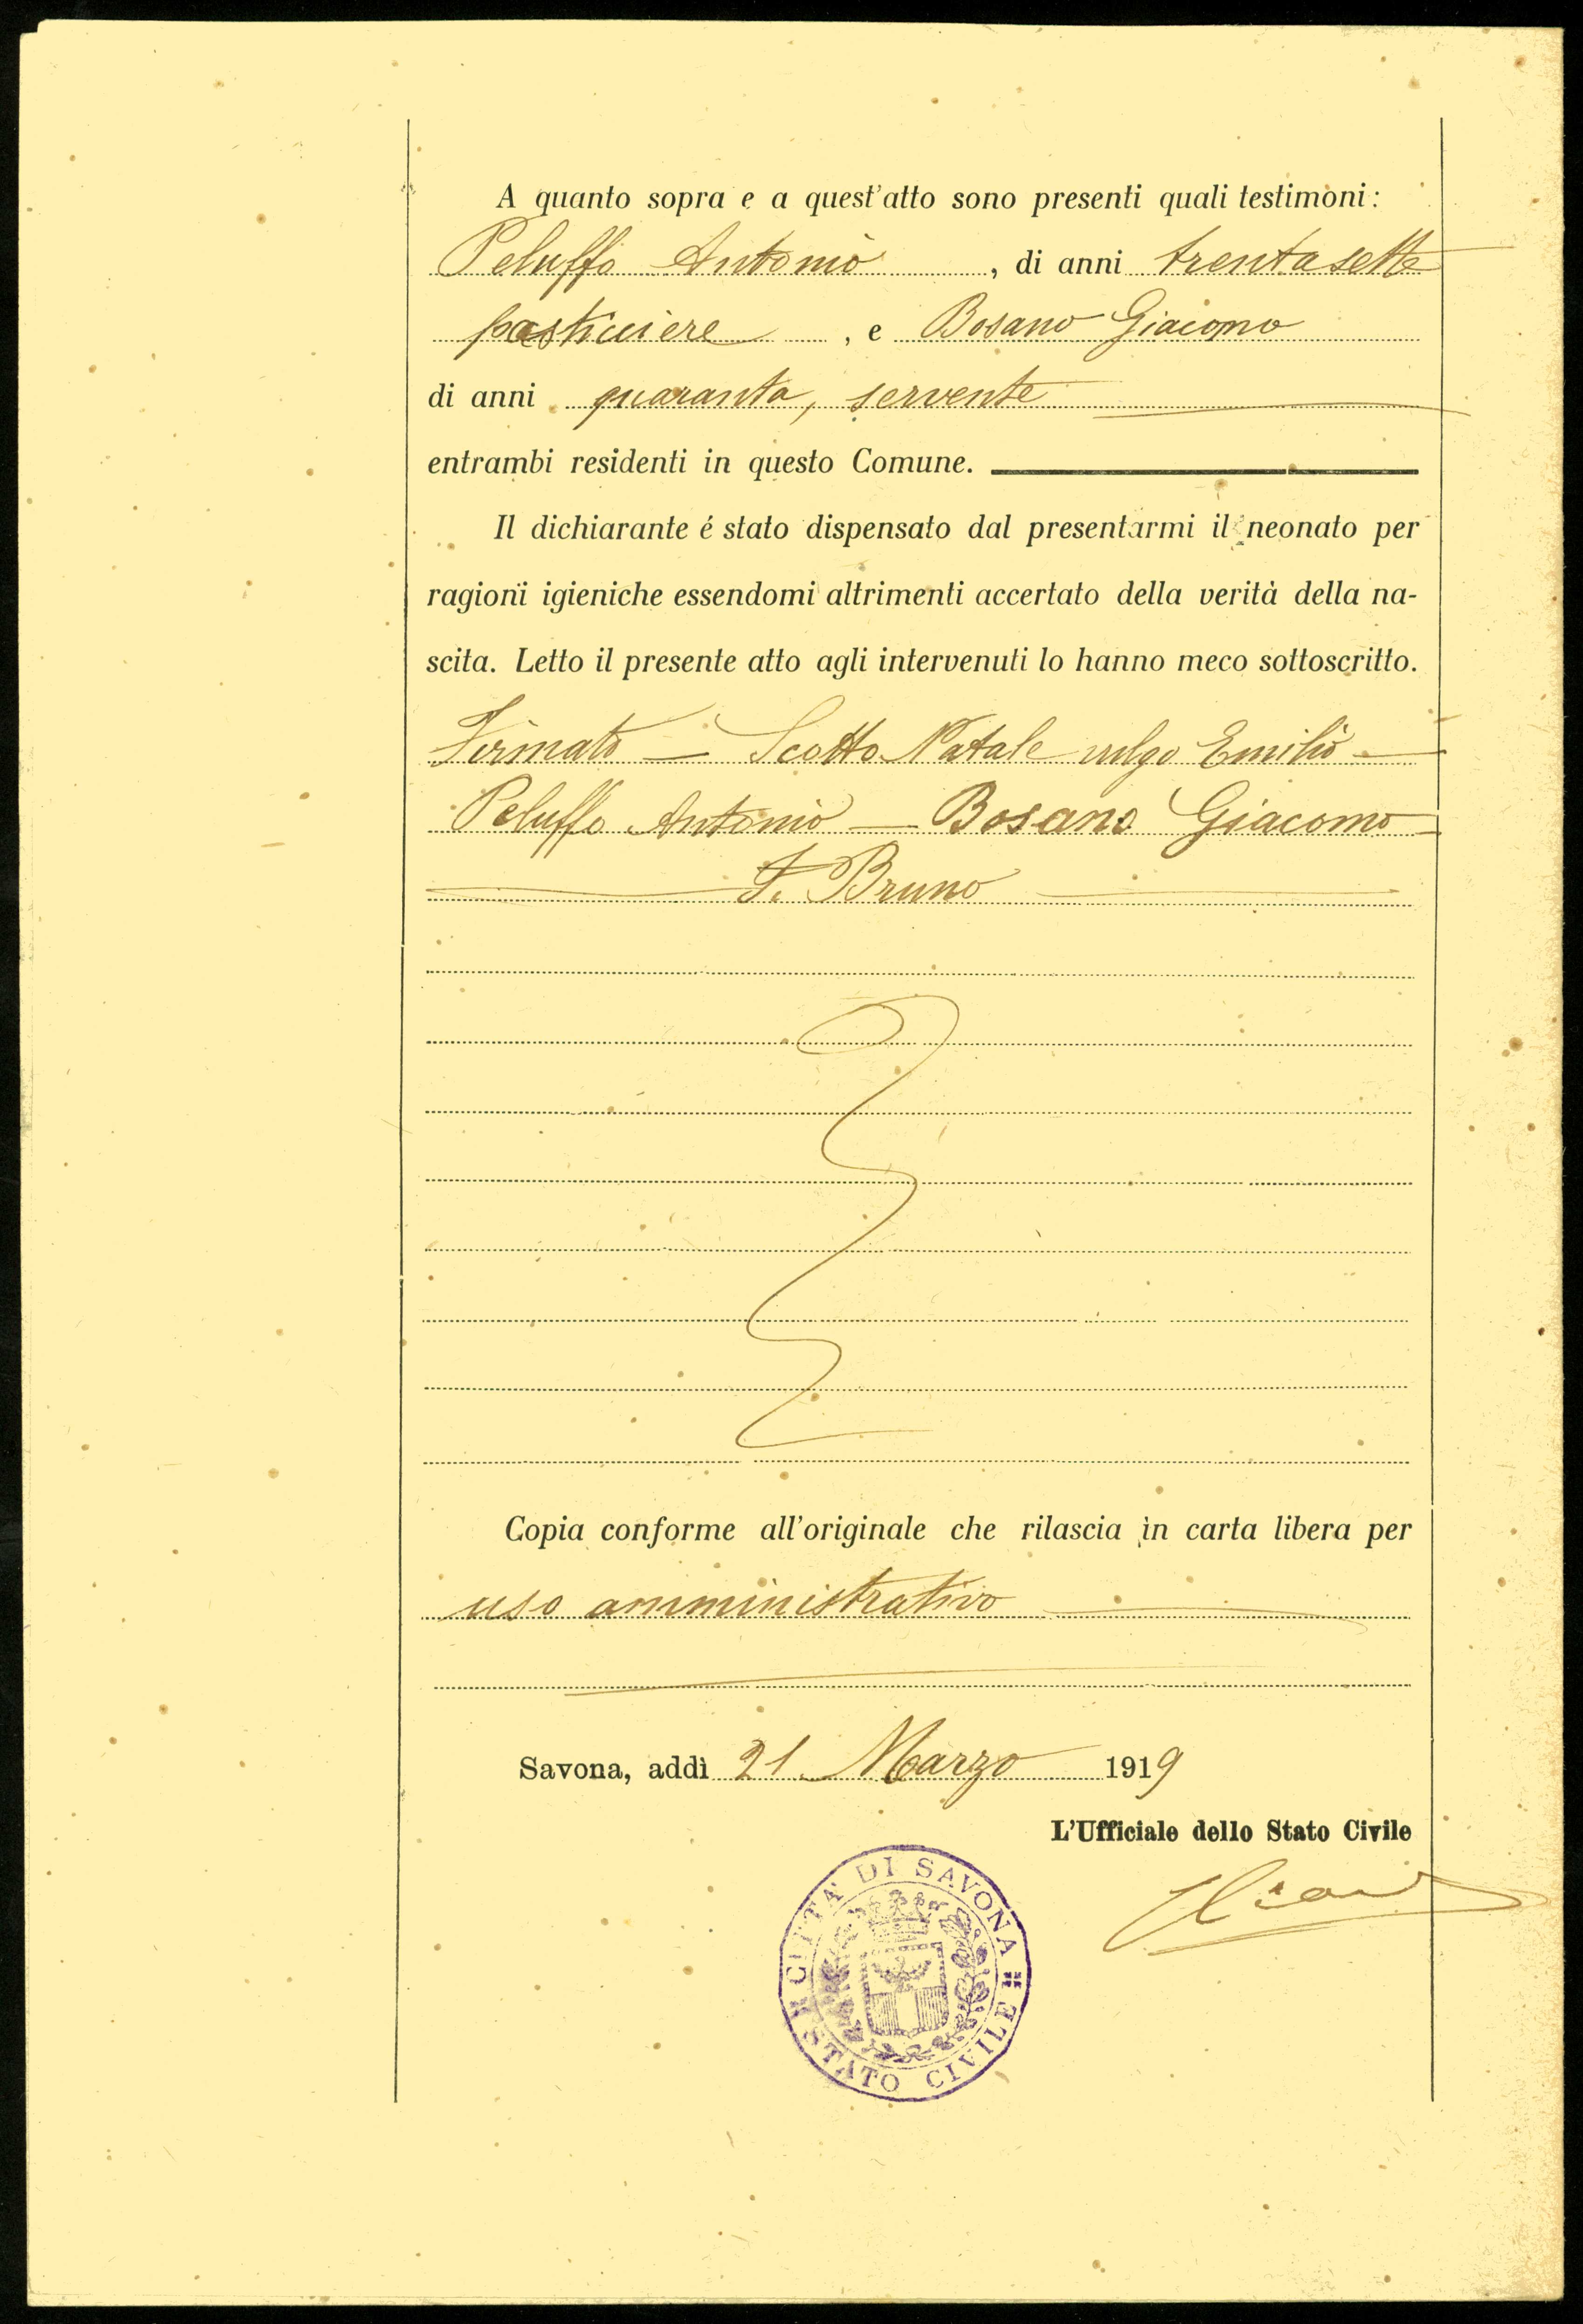 A quanto sopra e a quest'atto sono presenti quali testimoni:
Peluffo Antonio, di anni trentasette
pasticciere, e Bosano Giacomo
di anni quaranta, servente
entrambi residenti in questo Comune.
Il dichiarante é stato dispensato dal presentarmi il neonato per
ragioni igieniche essendomi altrimenti accertato della verità della na-
scita. Letto il presente atto agli intervenuti lo hanno meco sottoscritto.
Firmato — Scotto Natale vulgo Emilio —
Peluffo Antonio — Bosano Giacomo —
F. Bruno
Copia conforme all'originale che rilascia in carta libera per
uso amministrativo
Savona, addì 21 Marzo 1919
L'Ufficiale dello Stato Civile
CITTA' DI SAVONA
STATO CIVILE